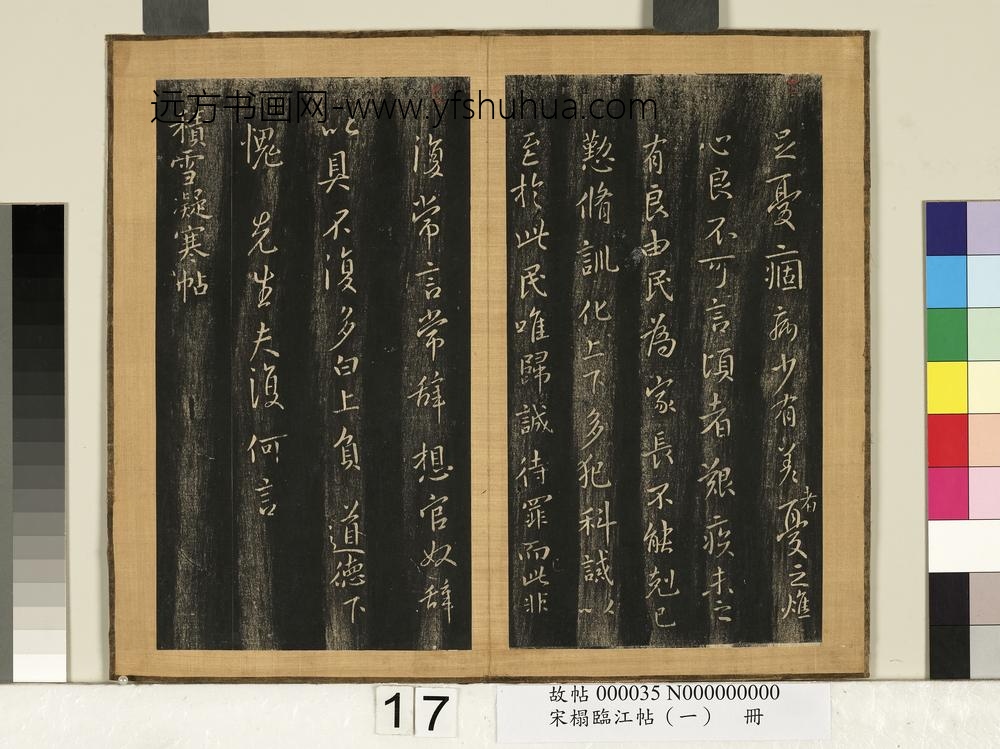 远方书画网-www.yfshuhua.com
足憂痼病少有差者憂之燋
心良不可言頃者艱疾未之
有良由民為家長不能剋己
懃脩訓化上下多犯科誡以
至於此民唯歸誠待罪而此非
復常言常辭想官奴辭
以具不復多白上負 道德下
愧 先生夫復何言
積雪凝寒帖
17
故帖 000035 N000000000
宋榻臨江帖（一） 冊